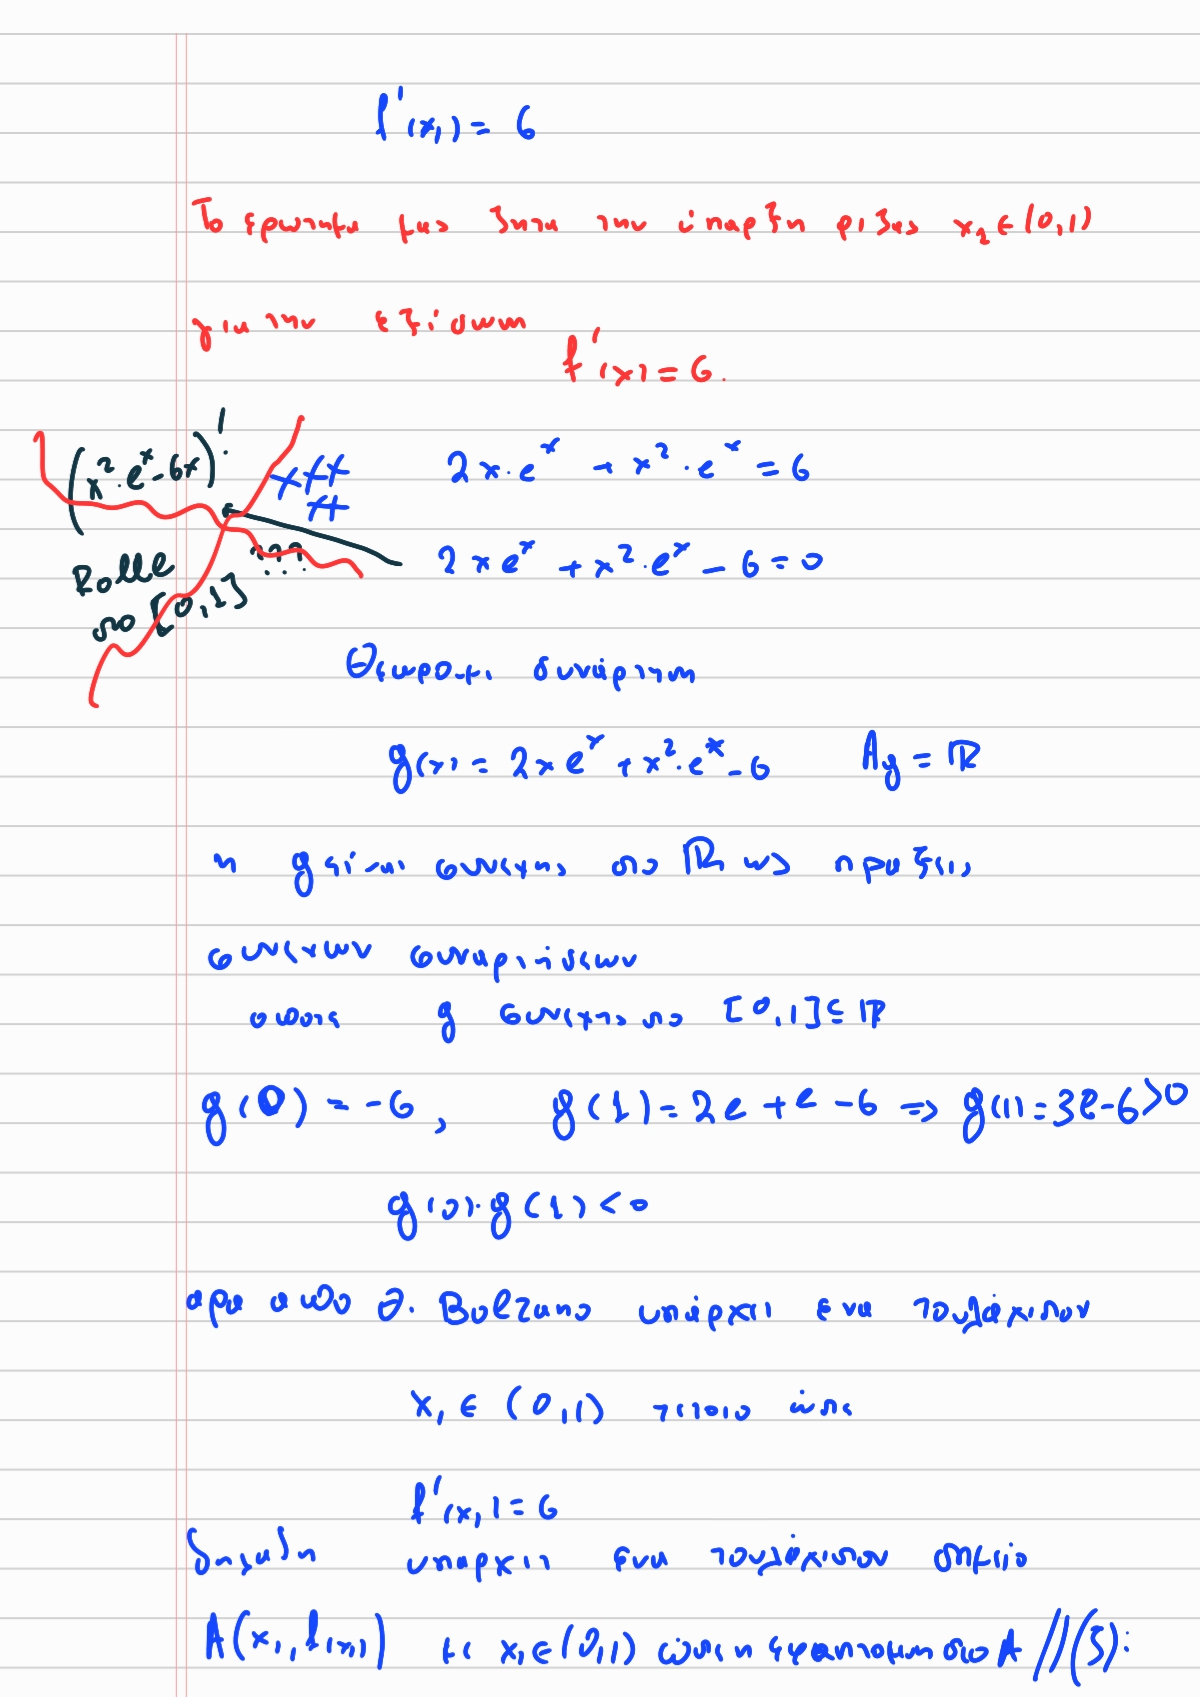 f'(x₁) = 6
Το ερωτημα μας ζητα την ύπαρξη ριζας x₂ ∈ (0,1)
για την εξίσωση
f'(x) = 6.
(x² · eˣ - 6x)'.
2x · eˣ + x² · eˣ = 6
2xeˣ + x² · eˣ - 6 = 0
???
Rolle
στο [0,1]
Θεωρουμε συνάρτηση
g(x) = 2xeˣ + x² · eˣ - 6 A_g = ℝ
η g είναι συνεχης στο ℝ ως πραξεις
συνεχων συναρτήσεων
οποτε g συνεχης στο [0,1] ⊆ ℝ
g(0) = -6, g(1) = 2e + e - 6 => g(1) = 3e - 6 > 0
g(0) · g(1) < 0
αρα απο Θ. Bolzano υπάρχει ενα τουλάχιστον
x₁ ∈ (0,1) τετοιο ώστε
f'(x₁) = 6
δηλαδη υπαρχει ενα τουλάχιστον σημείο
A(x₁, f(x₁)) με x₁ ∈ (0,1) ώστε η εφαπτομενη στο A //(ζ):